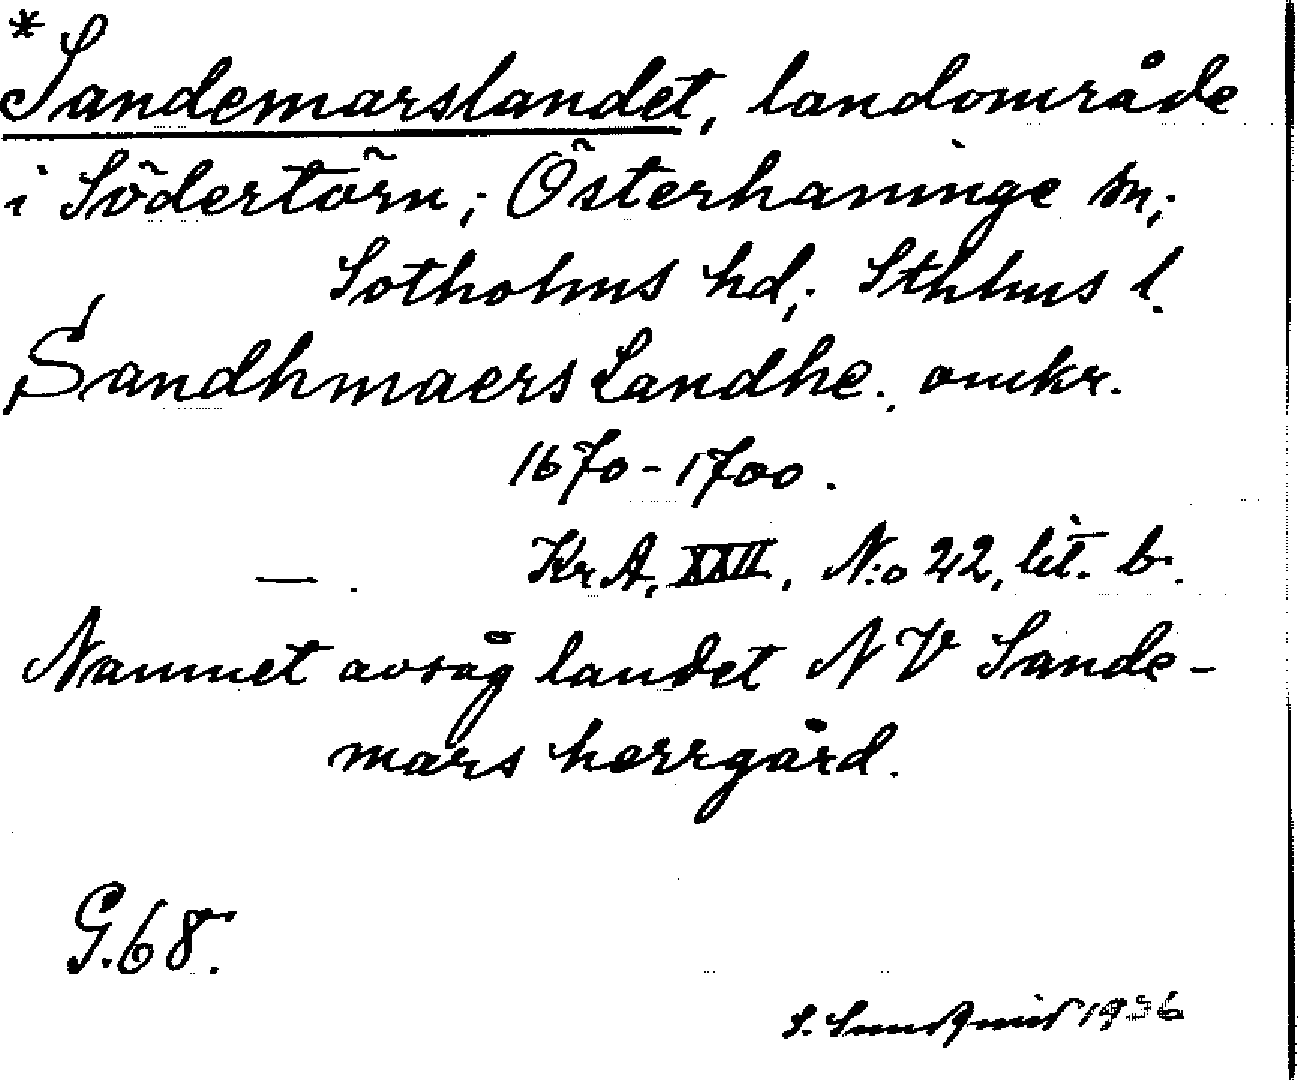 *
Sandemarslandet, landområde
i Södertörn; Österhaninge sn;
Sotholms hd; Sthlms l.
Sandhmaers Landhe. omkr.
1670-1700.
— . Kr A, XXII, N:o 22, lit. b.
Namnet avsåg landet N V Sande-
mars herrgård.
G.68.
S. Sundqvist 1936